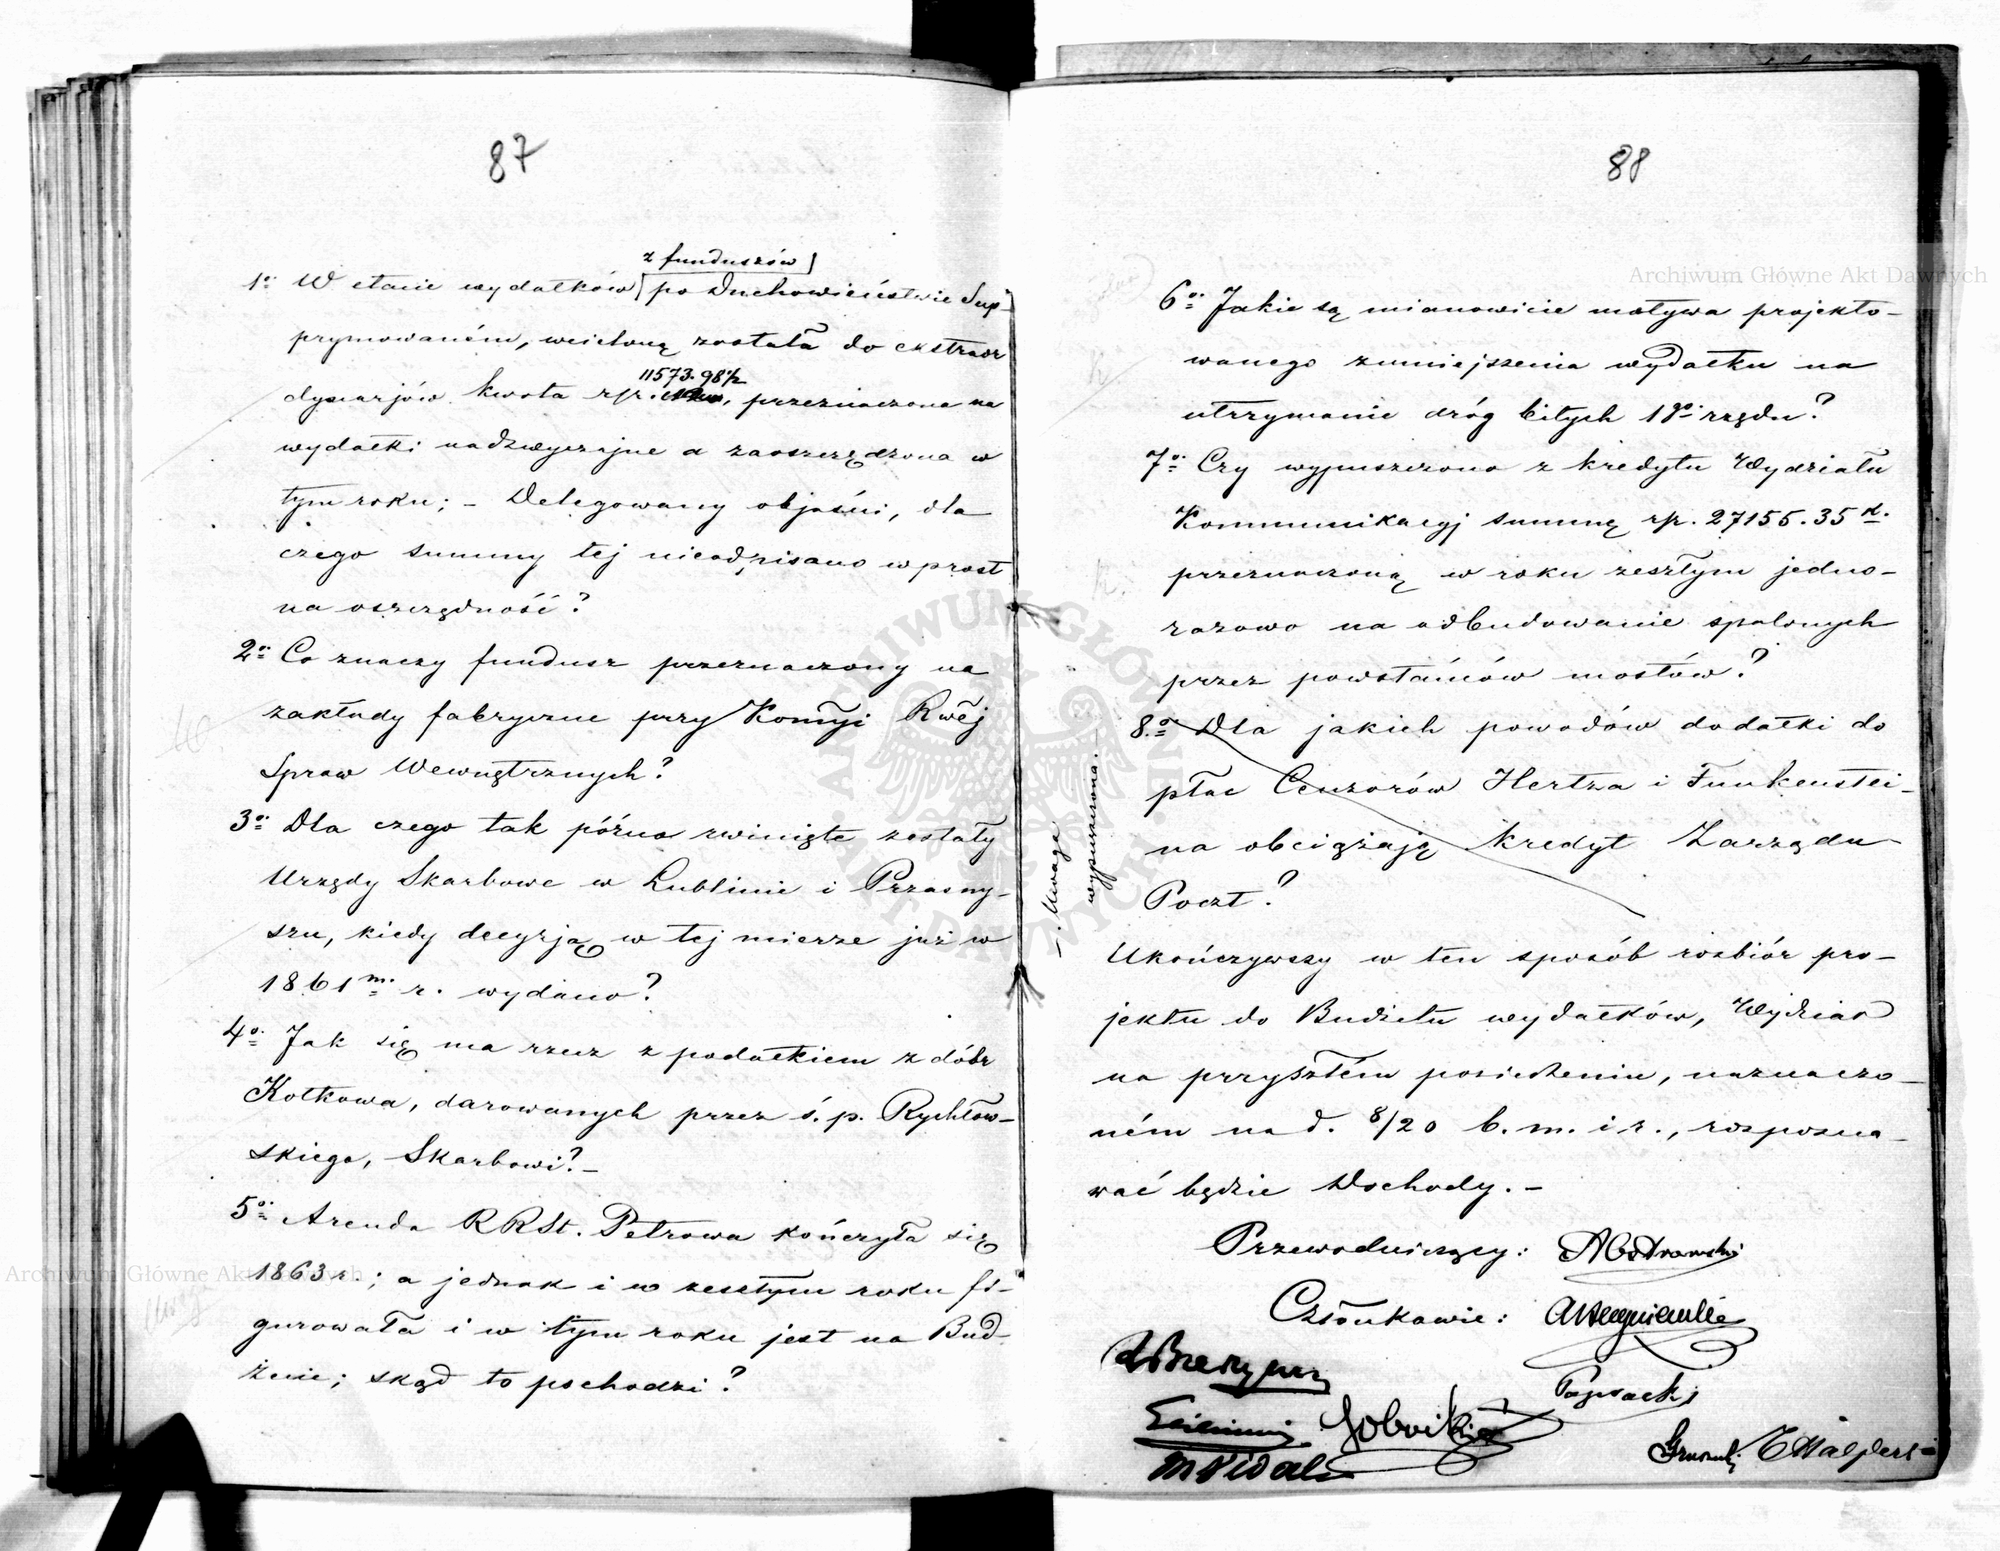 87
z funduszów
1o W etacie wydatków po Duchowieństwie Sup-
prymowaném, wcieloną została do ekstraor
dynarjów kwota rsr. 11573.98½, przeznaczona na
wydatki nadzwyczajne a zaoszczędzona w
tym roku; – Delegowany objaśni, dla
czego summy tej nieodpisano wprost
na oszczędność?
2o Co znaczy fundusz przeznaczony na
zakłady fabryczne przy Kommyi Rwéj
Spraw Wewnętrznych?
3o Dla czego tak późno zwinięte zostały
Urzędy Skarbowe w Lublinie i Przasny-
szu, kiedy decyzją w tej mierze już w
1861m. r. wydano?
4o Jak się ma rzecz z podatkiem z dóbr
Kotkowa, darowanych przez ś.p. Rychłow-
skiego, Skarbowi? –
5o Arenda RRSt. Petrowa kończyła się
1863 r.; a jednak i w zeszłym roku fi-
gurowała i w tym roku jest na Bud-
żecie; skąd to pochodzi?
88
6o Jakie są mianowicie motywa projekto-
wanego zmniejszenia wydatku na
utrzymanie dróg bitych 1go rzędu?
7o Czy wypuszczono z kredytu Wydziału
Kommunikacyj summę rsr. 27155.35 k.
przeznaczoną w roku zeszłym jedno-
razowo na odbudowanie spalonych
przez powstańców mostów?
8o Dla jakich powodów dodatki do
płac Cenzorów Hertza i Funkenstei-
na obciążają kredyt Zarządu
Poczt?
–. Uwaga
wypuszczona. –
Ukończywszy w ten sposób rozbiór pro-
jektu do Budżetu wydatków, Wydział
na przyszłém posiedzeniu, naznaczo-
ném na d. 8/20 b.m. i r., rozpozna-
wać będzie Dochody. –
Przewodniczący: AOstrowski
Członkowie:
Halpert
Archiwum Główne Akt Dawnych
Archiwum Główne Akt Dawnych
ARCHIWUM GŁÓWNE AKT DAWNYCH